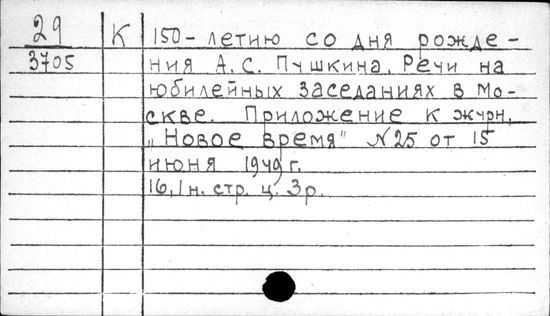 29 К 150-летию со дня рожде-
3705 ния А.С. Пушкина. Речи на
юбилейных заседаниях в Мо-
скве. Приложение к журн.
„Новое время" N25 от 15
июня 1949 г.
16, 1 н. стр. ц. 3 р.